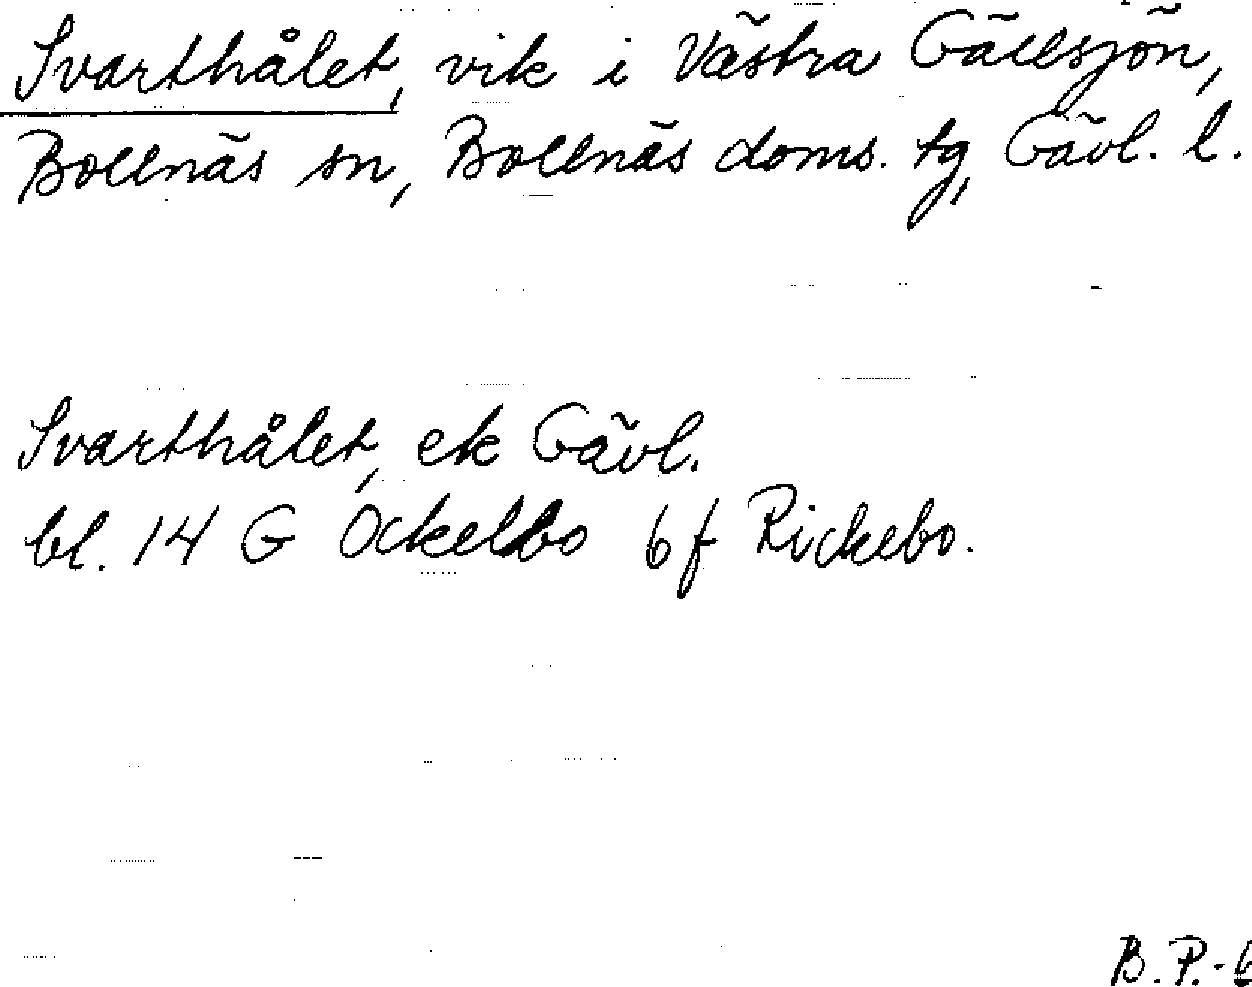 Svarthålet, vik i Västra Gällsjön,
Bollnäs sn, Bollnäs doms. tg, Gävl. l.
Svarthålet, ek Gävl.
bl. 14 G Ockelbo 6f Rickebo.
B.P.-6